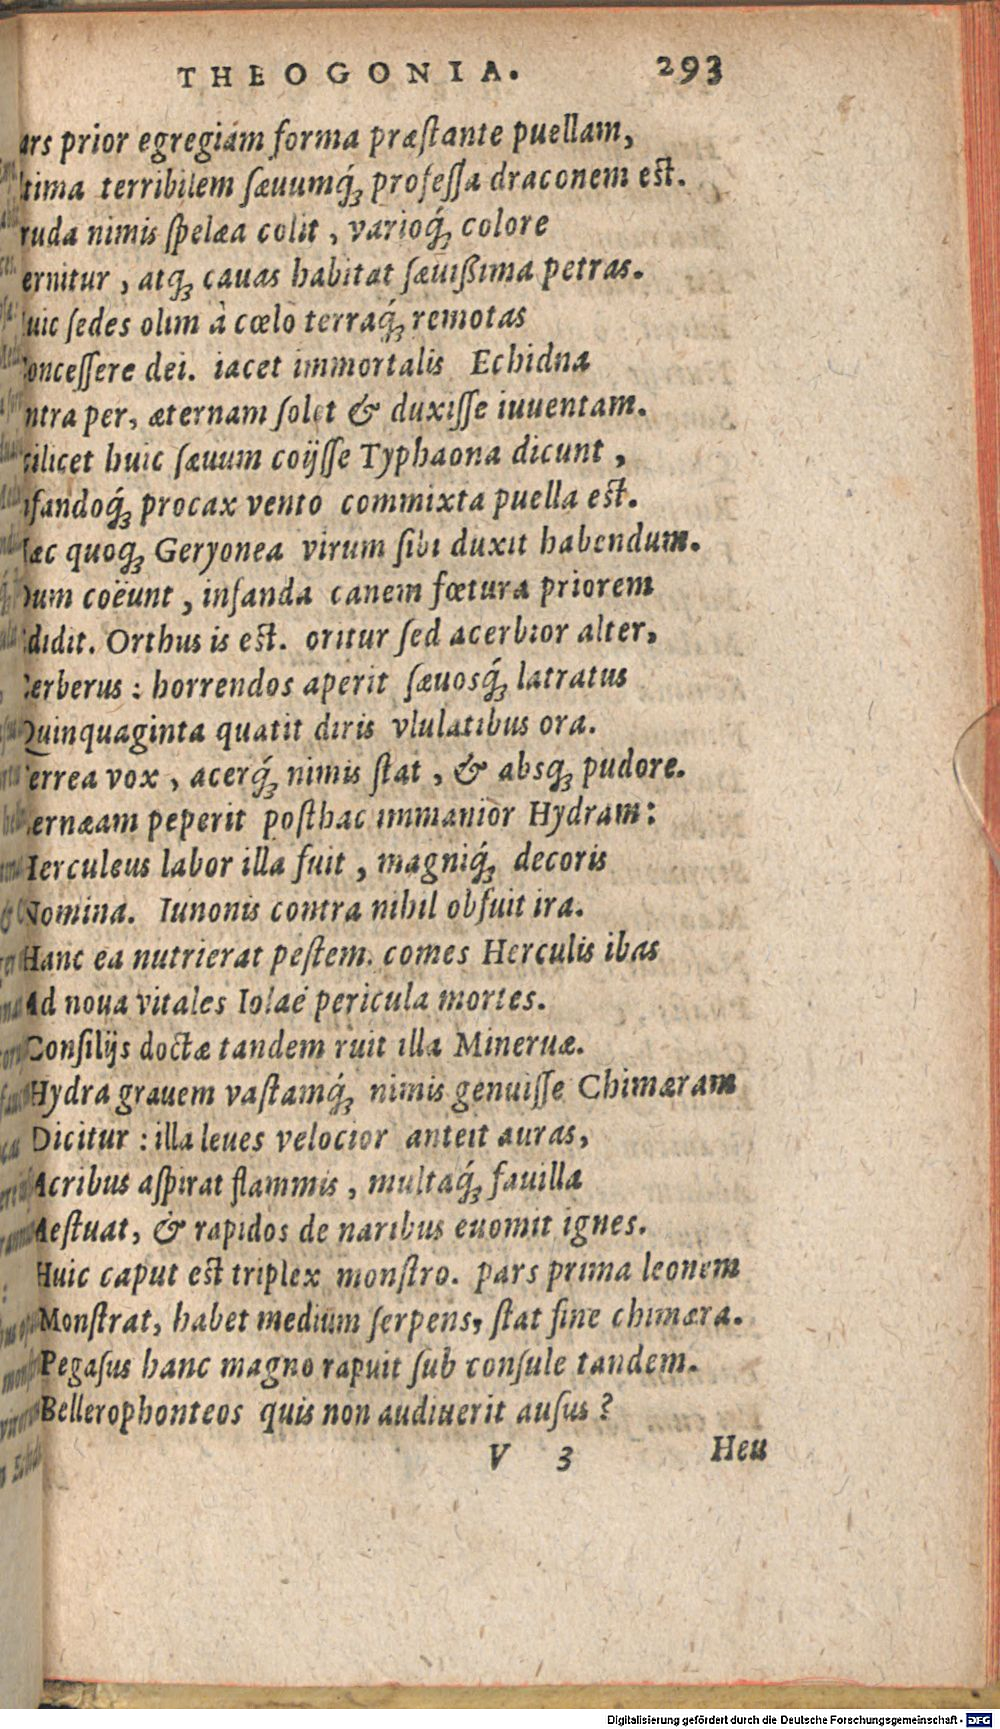 THEOGONIA. 293
ars prior egregiám forma præstante puellam,
tima terribilem sæuumq́; professa draconem est.
ruda nimis spelæa colit, varioq́; colore
ernitur, atq; cauas habitat sæuißima petras.
uic sedes olim à cœlo terraq́; remotas
oncessere dei. iacet immortalis Echidna
ntra per, æternam solet & duxisse iuuentam.
cilicet huic sæuum coijsse Typhaona dicunt,
nfandoq́; procax vento commixta puella est.
Hæc quoq; Geryonea virum sibi duxit habendum.
Dum coëunt, infanda canem fœtura priorem
didit. Orthus is est. oritur sed acerbior alter,
Cerberus: horrendos aperit sæuosq́; latratus
Quinquaginta quatit diris vlulatibus ora.
errea vox, acerq́; nimis stat, & absq; pudore.
ernæam peperit posthac immanior Hydram:
Herculeus labor illa fuit, magniq́; decoris
Nomina. Iunonis contra nihil obfuit ira.
Hanc ea nutrierat pestem. comes Herculis ibas
Ad noua vitales Iolaé pericula mortes.
Consilijs doctæ tandem ruit illa Mineruæ.
Hydra grauem vastamq́; nimis genuisse Chimæram
Dicitur: illa leues velocior anteit auras,
Acribus aspirat flammis, multaq́; fauilla
Aestuat, & rapidos de naribus euomit ignes.
Huic caput est triplex monstro. pars prima leonem
Monstrat, habet medium serpens, stat fine chimæra.
Pegasus hanc magno rapuit sub consule tandem.
Bellerophonteos quis non audiuerit ausus?
V 3 Heu
Digitalisierung gefördert durch die Deutsche Forschungsgemeinschaft - DFG